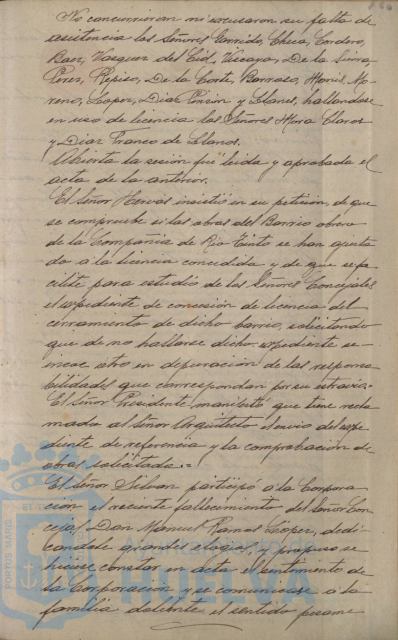 No concurrieron ni excusaron su falta de
asistencia los Señores Garrido, Checa, Cordero,
Baez, Vazquez del Cid, Vizcaya, De la Sierra,
Perez, Repiso, De la Corte, Borrero, Moril, Mo-
reno, Lopez, Diaz Ponzon y Llanes, hallandose
en uso de licencia los Señores Mora Claros
y Diaz Franco de Llanos.
Abierta la sesión fué leida y aprobada el
acta de la anterior.
El Señor Hervás insistió en su petición, de que
se compruebe si las obras del Barrio obrero
de la Compañia de Rio Tinto se han ajusta-
do á la licencia concedida y de que se fa-
cilite para estudio de los Señores Concejales
el expediente de concesión de licencia del
cerramiento de dicho barrio, solicitando
que de no hallarse dicho expediente se
incoe otro en depuración de las responsa-
bilidades que correspondan por su estravio.
El Señor Presidente manifestó que tiene recla-
mado al Señor Arquitecto el envio del expe-
diente de referencia y la comprobación de
obras solicitada.=
El Señor Silvan participó a la Corpora-
ción el reciente fallecimiento del Señor Con-
cejal Don Manuel Ramos Lopez, dedi-
candole grandes elogios, y propuso se
hiciese constar en acta el sentimiento de
la Corporación y se comunicase a la
familia doliente el sentido pesame
Ayuntamiento de
HUELVA
PORTUS MARIS